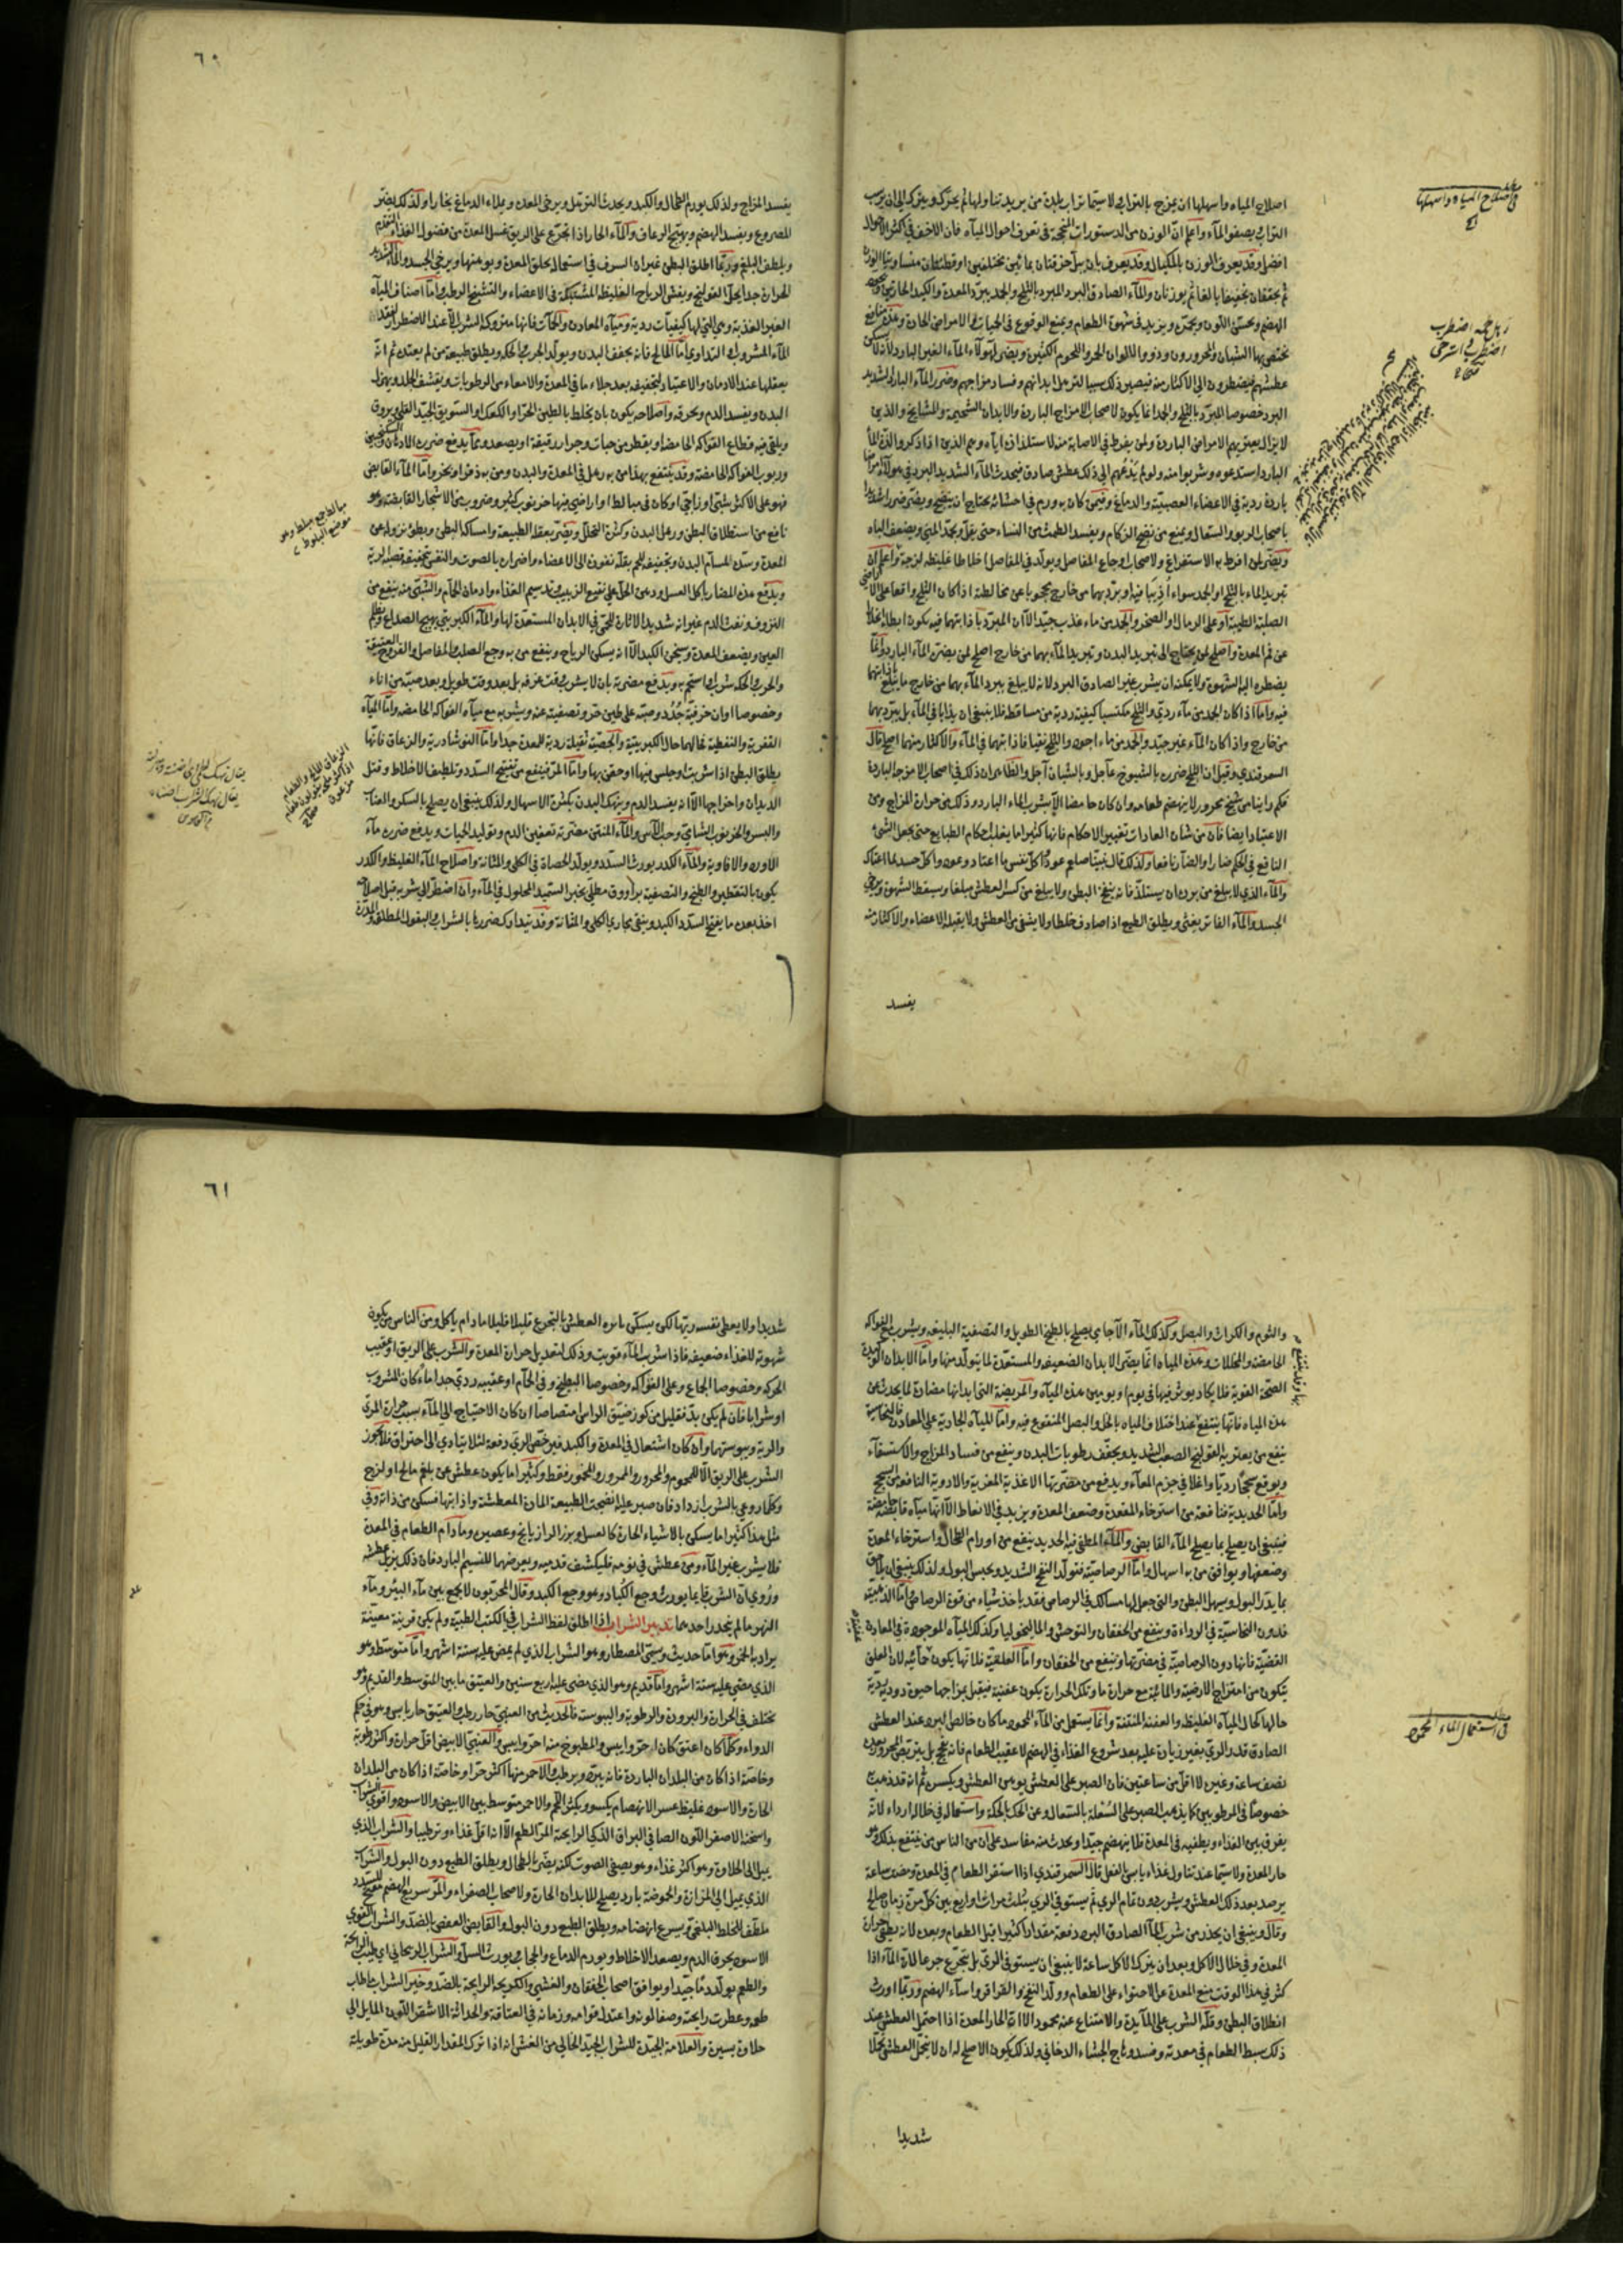 اصلاح المياه واسهلها ان يمزج بالتراب لا سيما تراب بلدة من يريد تناولها ثم يحرك ويترك الى ان يرسب
التراب ويصفو الماء واعلم ان الوزن من الدستورات المنجحة في تعرف احوال المياه فان الاخف في اكثر الاحوال
افضل وقد يعرف الوزن بالمكيال وقد يعرف بان يبل خرقتان بمائين مختلفين او قطنتان متساويتا الوزن
ثم يجففان تجفيفا بالغا ثم يوزنان والماء الصادق البرد المبرد بالثلج والجمد يبرد المعدة والكبد الحارتين
الهضم ويحسن اللون ويحمره ويزيد في شهوة الطعام ويمنع الوقوع في الحميات والامراض الحادة وهذه منافع
تختص بها الشبان والمحرورون وذوو الالوان الحمر واللحوم الكثيرة ويضر لهولاء الماء الغير البارد لانه لا يسكن
عطشهم فيضطرون الى الاكثار منه فيصير ذلك سببا لترهل ابدانهم وفساد مزاجهم وضرر الماء البارد الشديد
البرد خصوصا المبرد بالثلج والجمد انما يكون لاصحاب الامزاج الباردة والابدان الشحمية والمشايخ والذين
لا يزال يعتريهم الامراض الباردة ولمن يفرط في الاصابة منه لاستلذاذه اياه وهم الذين اذا ذكروا لذة الماء
البارد استدعوه وشربوا منه ولو لم يدعهم الى ذلك عطش صادق فيحدث الماء الشديد البرد في هولاء امراضا
باردة ردية في الاعضاء العصبية والدماغ وفيمن كان به ورم في احشائه يحتاج ان ينضج ويضر ضررا شديدا
باصحاب الربو والسعال ويمنع من نضج الزكام ويفسد الطمث من النساء حتى يقل ويجمد المني ويضعف الباه
ويضر لمن افرط به الاستفراغ ولاصحاب اوجاع المفاصل ويولد في المفاصل اخلاطا غليظة لزجة واعلم ان
تبريد الماء بالثلج او الجمد سواء اذيبا فيه او برد بهما من خارج محجوبا عن مخالطته اذا كان الثلج واقعا على الاراضي
الصلبة الطيبة او على الرمال او الصخر والجمد من ماء عذب جيد الا ان المبرد باذابتهما فيه يكون ابطأ نزولا
عن فم المعدة واصلح لمن يحتاج الى تبريد البدن وتبريد الماء بهما من خارج اصلح لمن يضره الماء البارد وانما
يضطره اليه الشهوة ولا يمكنه ان يشرب غير الصادق البرد لانه لا يبلغ ببرد الماء بهما من خارج ما يبلغ باذابتهما
فيه واما اذا كان الجمد من ماء ردي والثلج مكتسبا كيفية ردية من مساقطه فلا ينبغي ان يذابا في الماء بل يبرد بهما
من خارج واذا كان الماء غير جيد والجمد من ماء اجود والثلج نقيا فاذابتهما في الماء والاكثار منهما اصلح قال
السمرقندي وقيل ان الثلج ضرره بالشيوخ عاجل وبالشبان آجل والظاهر ان ذلك في اصحاب الامزجة الباردة
فكم راينا من شيخ محرور لا ينهضم طعامه وان كان حامضا الا بشرب الماء البارد وذلك من حرارة المزاج ومن
الاعتياد ايضا فان من شان العادات تغيير الاحكام فانها كثيرا ما يغلب احكام الطبايع حتى يجعل الشئ
النافع في الحكم ضارا والضار نافعا ولذلك قال نبينا صلعم عودوا كل نفس ما اعتاد وعوده اكل جسد بما اعتاد
والماء الذي لا يبلغ من برده ان يستلذ فانه ينفخ البطن ولا يبلغ من كسر العطش مبلغا ويسقط الشهوة ويرخي
الجسد والماء الفاتر يغثي ويطلق الطبع اذا صادف خلطا ولا يشفي من العطش ولا يقبله الاعضاء والاكثار منه
يفسد
في اصلاح المياه واسهلها
رهل لحمه اضطرب
٦٠
يفسد المزاج ولذلك يورم الطحال والكبد ويحدث الترهل ويرخي المعدة ويملاء الدماغ بخارا ولذلك يضر
المصروع ويفسد الهضم ويهيج الرعاف والماء الحار اذا تجرع على الريق غسل المعدة من فضول الغذاء المتقدم
ويلطف البلغم وربما اطلق البطن غير ان السرف في استعماله يخلق المعدة ويوهنها ويرخي الجسد والماء الشديد
الحرارة جدا يحل القولنج ويفش الرياح الغليظة المشتبكة في الاعضاء والتشنج الرطب واما اصناف المياه
الغير العذبة وهي التي لها كيفيات ردية ومياه المعادن والحمآت فانها متروكة الشرب الا عند الاضطرار لفقد
الماء المشروب او التداوي اما المالح فانه يجفف البدن ويولد الجرب والحكة ويطلق طبيعة من لم يعتده ثم انه
يعقلها عند الادمان والاعتياد لتجفيفه بعد جلاء ما في المعدة والامعاء من الرطوبات ويقشف الجلد ويهزل
البدن ويفسد الدم ويحرقه واصلاحه يكون بان يخلط بالطين الحر او الكعك او السويق الجيد القلي ويروق
ويلقى فيه قطاع الفواكه الحامضة او يقطر من حباب وجرار رقيقة او يصعد ومما يدفع ضرره الادمان السكنجبين
وربوب الفواكه الحامضة وقد ينتفع بهذا من به رهل في المعدة والبدن ومن به ذفر او بخر واما الماء القابض
فهو على الاكثر شبي او زاجي او كان في مبالط او اراضي فيها خرنوب كثير وضروب من الاشجار القابضة وهو
نافع من استطلاق البطن ورهل البدن وكثرة التحلل ويضر بعقله الطبيعة وامساكه البطن وبطؤ نزوله عن
المعدة وسده المسام البدن وتجفيفه للحم بقلة نفوذه الى الاعضاء واضراره بالصوت والنفس لتجفيفه قصبة الرية
ويدفع هذه المضار باكل العسل ودهن الحل على نقيع الزبيب وتدسيم الغذاء وادمان الحمام والشبي منه ينفع من
النزوف ونفث الدم غير انه شديد الاثارة للحمى في الابدان المستعدة لها والماء الكبريتي يهيج الصداع ويظلم
العين ويضعف المعدة ويسخن الكبد الا انه يسكن الرياح وينفع من به وجع الصلب والمفاصل والقروح العتيقة
والجرب والحكة شربا واستحم به ويدفع مضرته بان لا يشرب وقت غرفه بل بعد وقت طويل وبعد صبه من اناء
وخصوصا اوان خزفية جدد وصبه على طين حر وتصفيته عنه ويشربه مع مياه الفواكه الحامضة واما المياه
القفرية والنفطية فحالهما حال الكبريتية والجصية ثقيلة ردية للمعدة جدا واما النوشادرية والزعاق فانها
يطلق البطن اذا شربت او جلس فيها او حقن بها واما المر فينفع من تفتيح السدد وتلطيف الاخلاط وقتل
الديدان واخراجها الا انه يفسد الدم وينهك البدن بكثرة الاسهال ولذلك ينبغي ان يصلح بالسكر والعناب
والبسر والخرنوب الشامي وحب الآس والماء المنتن مضرته تعفين الدم وتوليد الحميات ويدفع ضرره ماء
والافاوية والماء الكدر يورث السدد ويولد الحصاة في الكلى والمثانة واصلاح الماء الغليظ والكدر
يكون بالتقطير والطبخ والتصفية براووق مطلي بخبز السميد المحلول في الماء وان اضطر الى شربه قبل اصلاحه
اخذ بعده ما يفتح السدد الكبد وينقي مجاري الكلى والمثانة وقد يتدارك ضررها بالشراب والبقول الملطفة والمدرة
مبالط جمع مبلط وهو
موضع البلوط
الزعاق المالح والطعام
٦١
والثوم والكراث والبصل وكذلك الماء الآجامي يصلح بالطبخ الطويل والتصفية البليغة ويشرب مع الفواكه
الحامضة والمخللات وهذه المياه انما يضر الابدان الضعيفة والمستعدة لما يتولد منها واما الابدان
الصحة القوية فلا يكاد يوثر فيها في يوم او يومين هذه المياه والمريضة التي ابدانها مضادة لما يحدث عن
هذه المياه فانها ينتفع عند اختلاف المياه بالخل والبصل المنقوع فيه واما المياه الجارية على المعادن فالنحاسية
ينفع من يعتريه القولنج الصعب الشديد ويجفف رطوبات البدن وينفع من فساد المزاج والاستسقاء
ويوقع سحجا رديا واغلا في جرم المعاء ويدفع من مضرتها الاغذية المغرية والادوية النافعة من السحج
واما الحديدية فنافعة من استرخاء المقعدة وضعف المعدة ويزيد في الانعاظ الا انها مياه قابضة
فينبغي ان يصلح بما يصلح الماء القابض والماء المطفى فيه الحديد ينفع من اورام الطحال واسترخاء المعدة
وضعفها ويوافق من به اسهال واما الرصاصية فتولد النفخ الشديد ويحبس البول ولذلك ينبغي ان يلحق
بما يدر البول ويسهل البطن والتي جعل لها مسالك في الرصاص فقد ياخذ شيئا من قوة الرصاص واما الذهبية
فدون النحاسية في الرداءة وينفع من الخفقان والتوحش والماليخوليا وكذلك المياه الموجودة في المعادن
الفضية فانها دون الرصاصية في مضرتها وينفع من الخفقان واما العلقية فلانها يكون حمائية لان العلق
يتكون من امتزاج الارضية والمائية مع حرارة ما وتلك الحرارة يكون عفنية فيقبل بمزاجها حيوة دودية ردية
حالها كحال المياه الغليظة والعفنة المنتنة وانما يستعمل من الماء المحمود ما كان خالص البرد عند العطش
الصادق قدر الري بغير زيادة عليه بعد شروع الغذاء في الهضم لا عقيب الطعام فانه يفجج بل يتربص المحرورون
نصف ساعة وغيرهم لا اقل من ساعتين فان الصبر على العطش يوهن العطش ويكسره ثم انه قد ذهب
خصوصا في المرطوبين كما يذهب الصبر على السعلة بالسعال وعن الحك بالحكة واستعماله في خلاله ارداء لانه
يفرق بين الغذاء ويطفيه في المعدة فلا ينهضم جيدا ويحدث منه مفاسد على ان من الناس من ينتفع بذلك وهو
حار المعدة ولا سيما عند تناول غذاء يابس بالفعل قال السمرقندي اذا استقر الطعام في المعدة ومضى ساعة
يرصد بعد ذلك العطش ويشرب دون تمام الري ثم يستوفي الري بثلث مرات او اربع بين كل مرة زمان صالح
وقال وينبغي ان يحذر من شرب الماء الصادق البرد دفعة مقدارا كثيرا قبل الطعام وبعده لانه يطفي حرارة
المعدة وفي خلال الاكل وبعد ان يترك الاكل ساعة لا ينبغي ان يستوفي الري بل يتجرع جرعا لان الماء اذا
كثر في هذا الوقت منع المعدة عن الاحتواء على الطعام وولد النفخ والقراقر واساء الهضم وربما اورث
انطلاق البطن وقلة الشرب على المايدة والامتناع عنه محمود الا ان الحار المعدة اذا احتمل العطش عند
ذلك سبط الطعام في معدته وفسد وهاج الجشاء الدخاني ولذلك يكون الاصلح له ان لا يتحمل العطش تحملا
شديدا
في استعمال الماء المحمود
شديدا ولا يعطي نفسه ريها لكن يسكن نائرة العطش بالتجرع قليلا قليلا ما دام ياكل ومن الناس من يكون
شهوته للغذاء ضعيفة فاذا شرب الماء قويت وذلك لتعديل حرارة المعدة والشرب على الريق او عقيب
الحركة وخصوصا الجماع وعلى الفواكه وخصوصا البطيخ وفي الحمام او عقيبه ردي جدا ماء كان المشروب
او شرابا فان لم يكن بد فقليل من كوز ضيق الراس امتصاصا ان كان الاحتياج الى الماء بسبب حرارة المري
والرية ويبوستهما وان كان اشتعال في المعدة والكبد فيرخص الري دفعة لئلا يتادي الى احتراق فلا يجوز
الشرب على الريق الا للمحموم والمحرور والممرور والمخمور فقط وكثيرا ما يكون عطش عن بلغم مالح او لزج
وكلما روعي بالشرب ازداد فان صبر عليه نضجت الطبيعة المادة المعطشة واذابتها فسكن من ذاته وفي
مثل هذا كثيرا ما يسكن بالاشياء الحارة كالعسل وبزر الرازيانج وعصيره وما دام الطعام في المعدة
فلا يشرب غير الماء ومن عطش في نومه فليكشف قدميه ويعرضهما للنسيم البارد فان ذلك يزيل عطشه
وروي ان الشرب قايما يورث وجع الكباد وهو وجع الكبد وقال المجربون لا يجمع بين ماء البئر وماء
النهر ما لم ينحدر احدهما تدبير الشراب اذا اطلق لفظ الشراب في الكتب الطبية ولم يكن قرينة معينة
يراد به الخمر وهو اما حديث ويسمى المصطار وهو الشراب الذي لم يمض عليه ستة اشهر واما متوسط وهو
الذي مضى عليه ستة اشهر واما قديم وهو الذي مضى عليه اربع سنين والعتيق ما بين المتوسط والقديم وهو
يختلف في الحرارة والبرودة والرطوبة واليبوسة فالحديث من العنبي حار رطب والعتيق حار يابس وهو في حكم
الدواء وكلما كان اعتق كان احر وايبس والمطبوخ منه احر وايبس والعنبي الابيض اقل حرارة واكثر رطوبة
وخاصة اذا كان من البلدان الباردة فانه يبرد ويرطب والاحمر منها اكثر حرا وخاصة اذا كان من البلدان
الحارة والاسود غليظ عسر الانهضام يكسو ويكثر اللحم والاحمر متوسط بين الابيض والاسود واقوى الشراب
واسخنه الاصفر اللون الصافي البراق الذكي الرايحة المر الطعم الا انه اقل غذاء وترطيبا والشراب الذي
يميل الى الحلاوة وهو اكثر غذاء وهو يصفي الصوت لكنه يضر بالطحال ويطلق الطبع دون البول والشراب
الذي يميل الى المزازة والحموضة بارد يصلح للابدان الحارة ولاصحاب الصفراء والمر سريع الهضم مفتح للسدد
ملطف للخلط البلغمي ويسرع انهضامه ويطلق الطبع دون البول والقابض العفص بالضد والشراب القوي
الاسود يحرق الدم ويصعد الاخلاط ويورم الدماغ والحجاب ويورث السل والشراب الريحاني اي طيب الرايحة
والطعم يولد دما جيدا ويوافق اصحاب الخفقان والغشي والكريه الرايحة بالضد وخير الشراب ما طاب
طعمه وعطرت رايحته وصفا لونه واعتدل قوامه وزمانه في العتاقة والحداثة الاشقر اللون المايل الى
حلاوة يسيرة والعلامة الجيدة للشراب الجيد الخالي من الغش انه اذا ترك المقدار القليل منه مدة طويلة